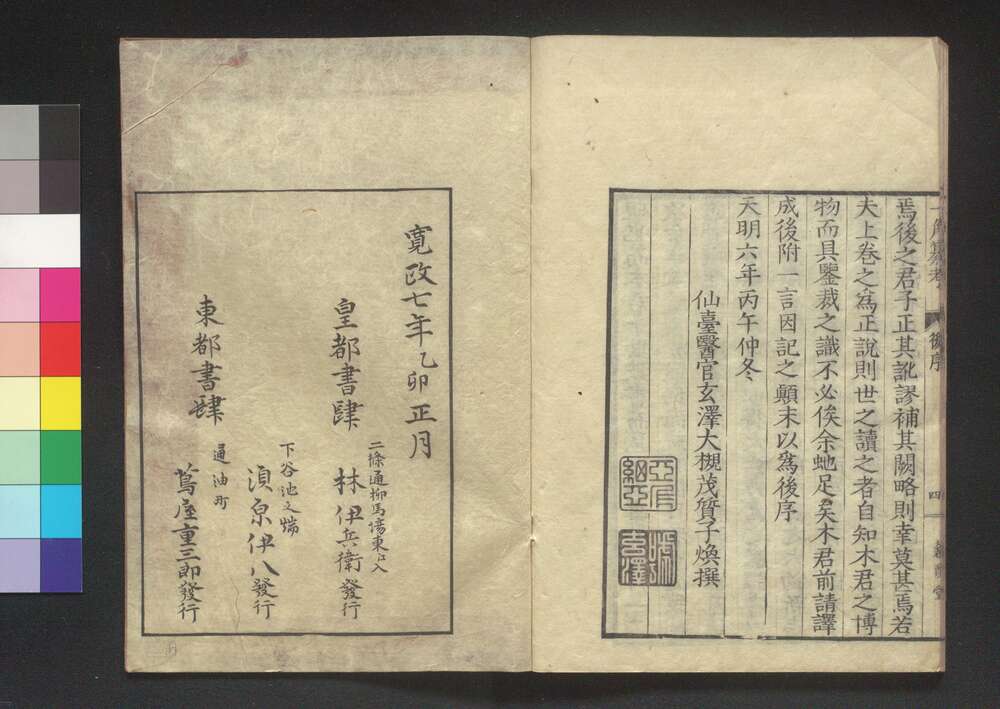 焉後之君子正其訛謬補其闕略則幸莫甚焉若
夫上卷之爲正說則世之讀之者自知木君之博
物而具鑒裁之識不必俟余虵足矣木君前請譯
成後附一言因記之顛末以爲後序
天明六年丙午仲冬
仙臺醫官玄澤大槻茂質子煥撰
後序
四
寬政七年乙卯正月
皇都書肆
二條通柳馬場東江入
林伊兵衛發行
東都書肆
下谷池之端
湏原伊八發行
通油町
蔦屋重三郎發行